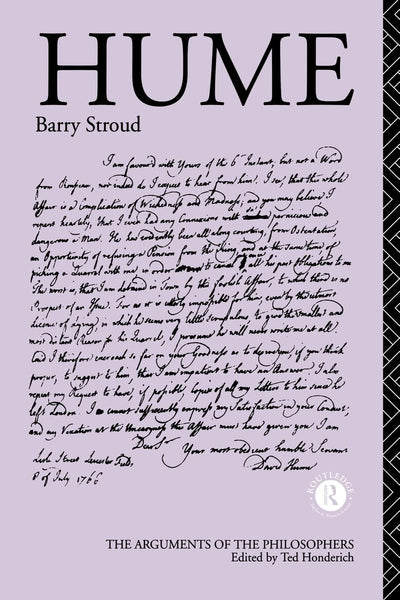 HUME
Barry Stroud
I am favoured with Yours of the 6th Instant; but not a Word
from Rousseau, nor indeed do I expect to hear from him. I see, that this whole
Affair is a Complication of Wickedness and Madness; and you may believe I
repent heartily, that I ever had any Connexions with so pernicious and
dangerous a Man. He has evidently been all along courting, from Ostentation,
an Opportunity of refusing a Pension from the King, and at the same time of
picking a Quarrel with me, in order to cancel all his past Obligations to me
The worst is, that I am detained in Town by this foolish Affair, to which there is no
Prospect of an End. For as it is utterly impossible for him, even by the utmost
Licence of lying, in which he seems very little scrupulous, to give the smallest and
most distant Reason for his Quarrel, I presume he will never write me at all.
And I therefore encroach so far on your Goodness as to desire you, if you think
proper, to suggest to him, that I am impatient to have an Answer. I also
repeat my Request to have, if possible, Copies of all my Letters to him since he
left London. I cannot sufficiently express my Satisfaction in your Conduct;
and my Vexation at the this Affair must have given you. I am
Dear Sir
Your most obedient humble Servant
David Hume
Lisle Street Leicester Fields,
8 of July 1766
ROUTLEDGE
R
THE ARGUMENTS OF THE PHILOSOPHERS
Edited by Ted Honderich